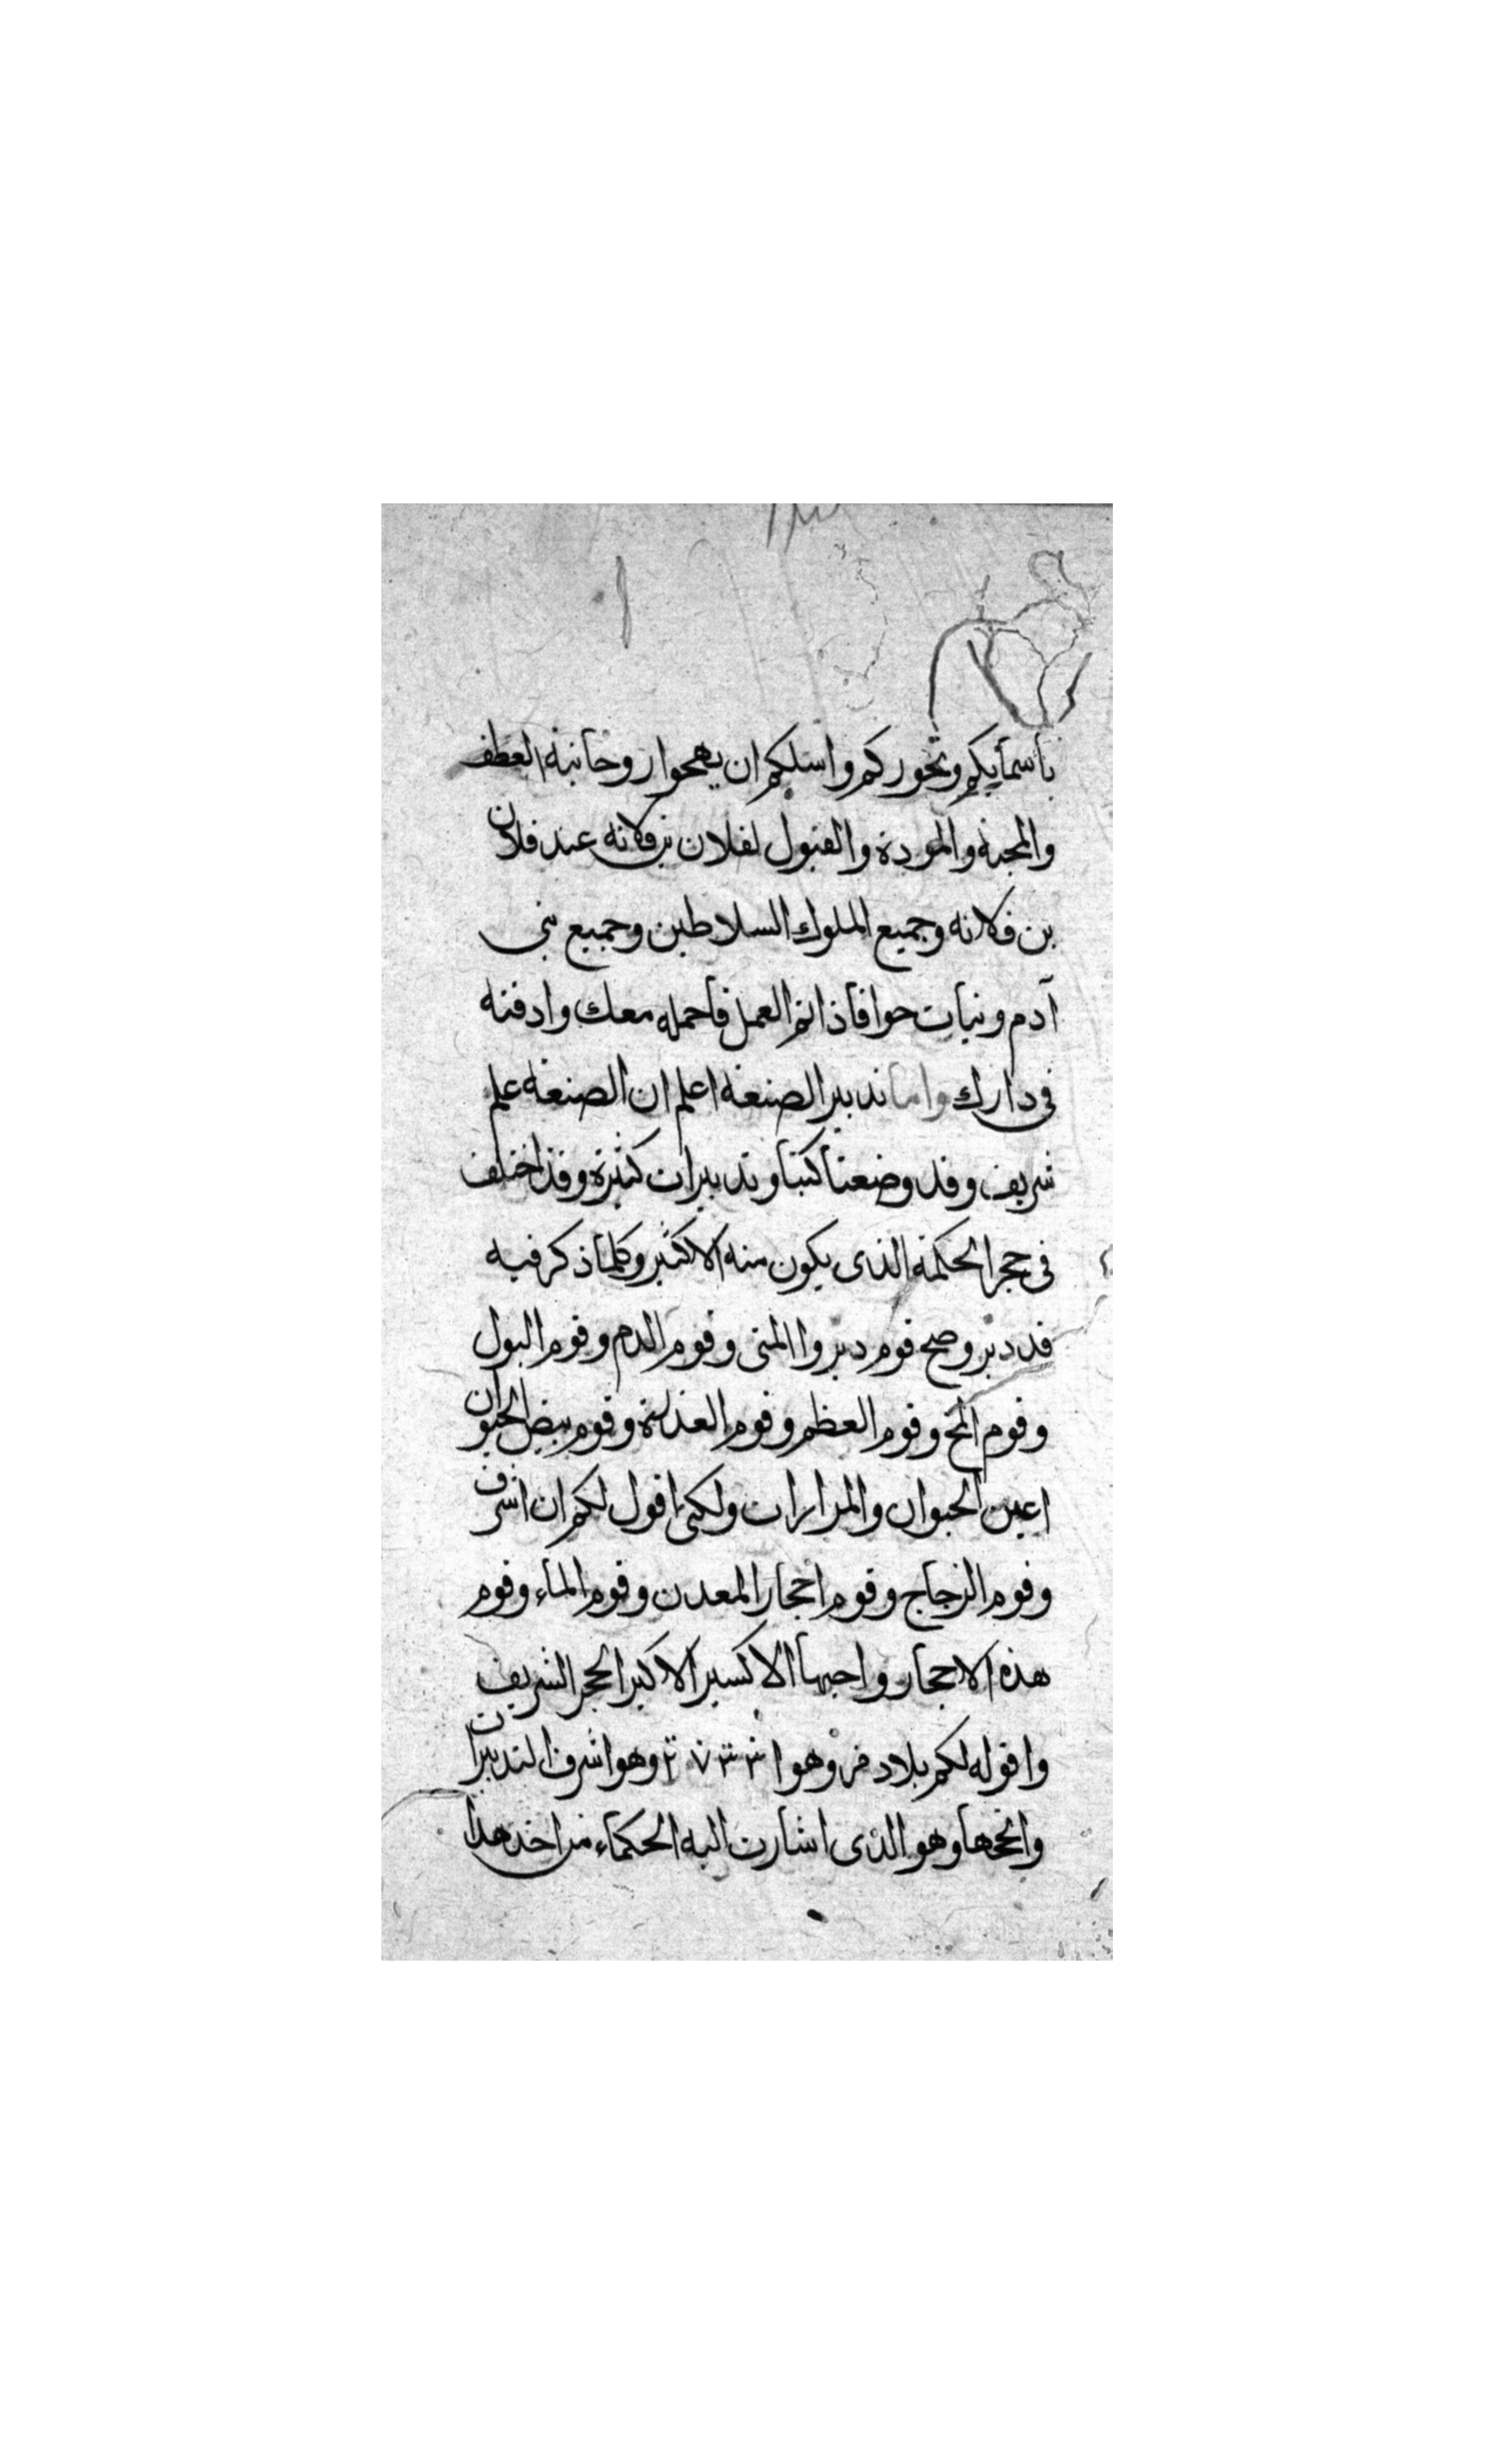 باسمايكم وبخوركم واسلكم ان يهيجوا روحانية العطف
والمحبة والمودة والقبول لفلان بن فلانه عند فلان
بن فلانه وجميع الملوك السلاطين وجميع بني
آدم وبنات حوا فاذا تم العمل فاحمله معك وادفنه
في دارك واما تدبير الصنعة اعلم ان الصنعة علم
شريف وقد وضعنا كتبا وتدبيرات كثيرة وقد اختلف
في حجر الحكمة الذي يكون منه الاكثير وكلما ذكر فيه
قد دبر وصح قوم دبروا المني وقوم الدم وقوم البول
وقوم المخ وقوم العظم وقوم العذرة وقوم بيض الحيوان
اعين الحيوان والمرارات ولكني اقول لكم ان اشرف
وقوم الزجاج وقوم احجار المعدن وقوم الماء وقوم
هذه الاحجار واحبها الاكسير الاكبر الحجر الشريف
واقوله لكم بلا رمز وهو ا ٧ ٢ وهو اشرف التدبيرات
وانجحها وهو الذي اشارت اليه الحكماء فمن اخذ هذا